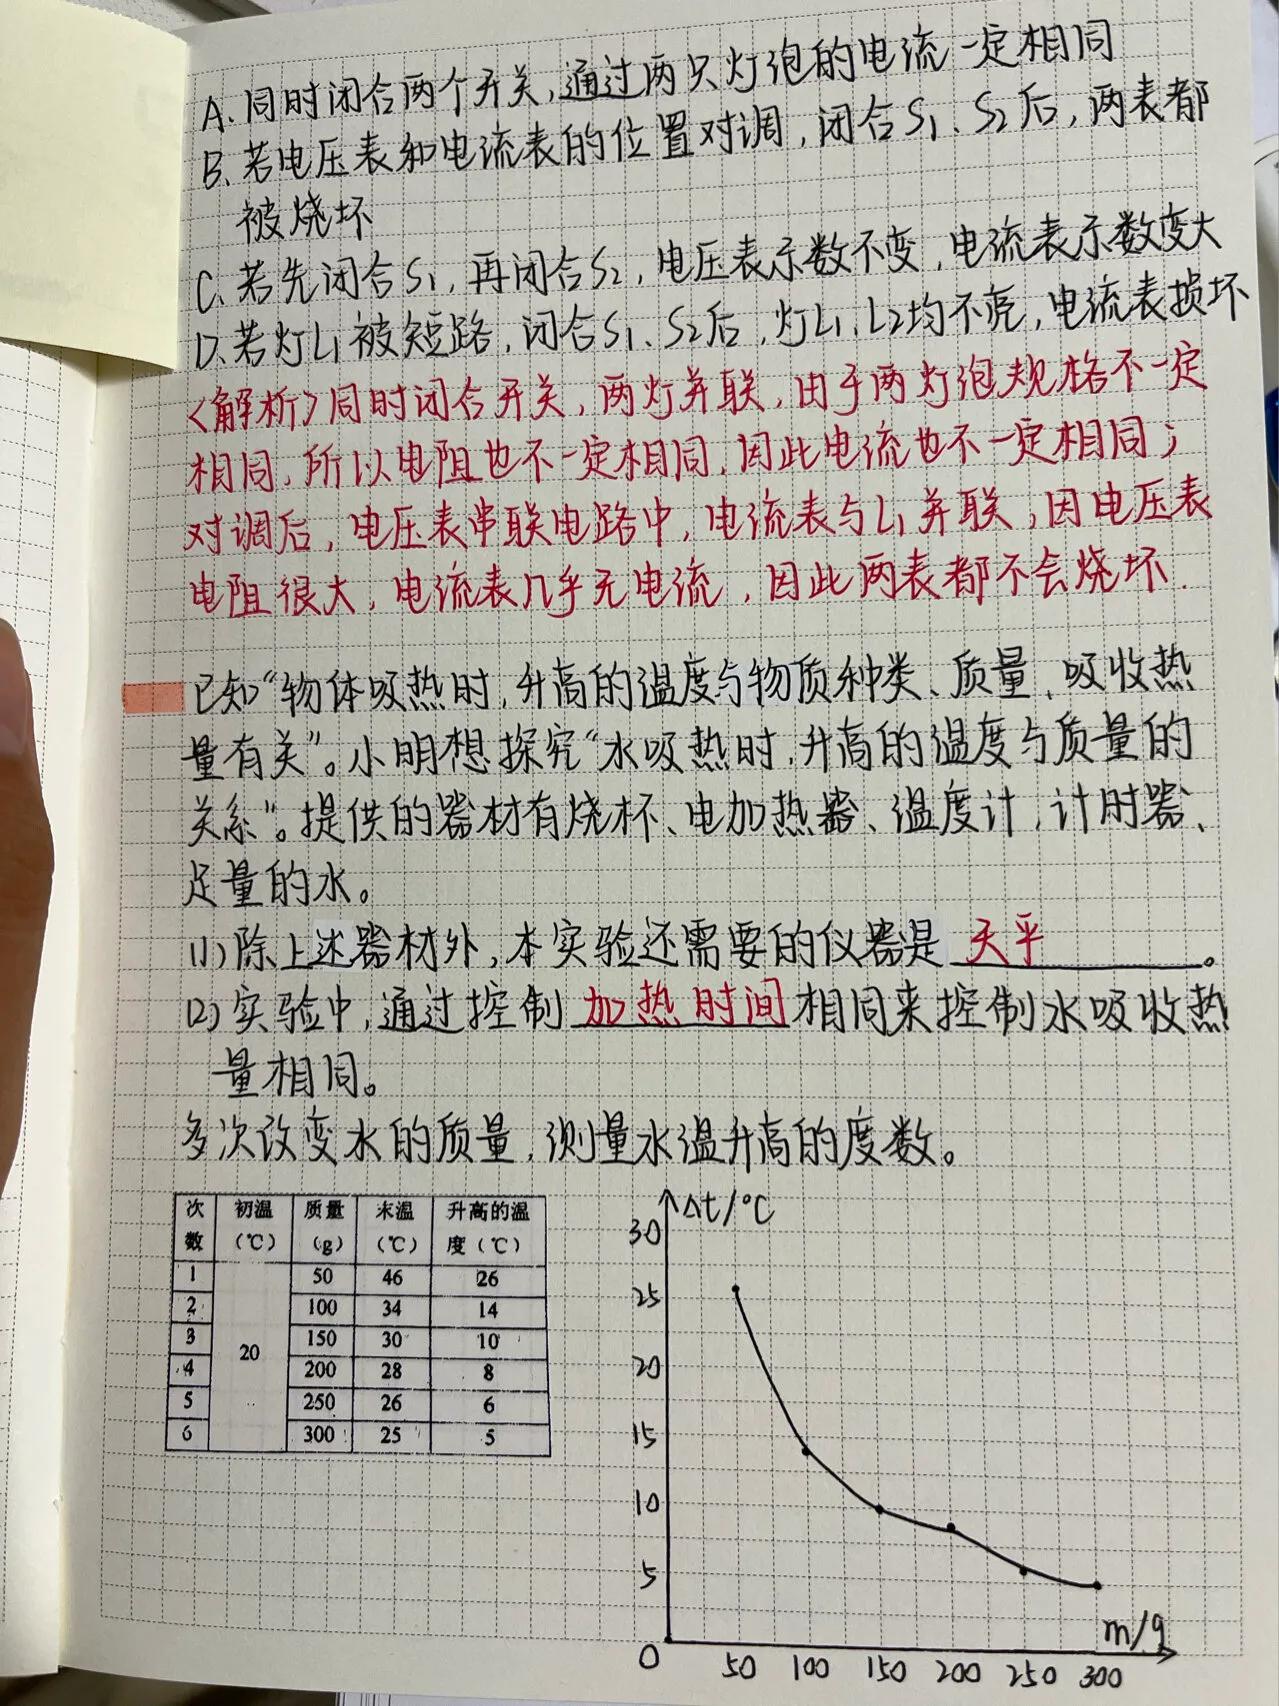 A、同时闭合两个开关，通过两只灯泡的电流一定相同
B、若电压表和电流表的位置对调，闭合S₁、S₂后，两表都
被烧坏
C、若先闭合S₁，再闭合S₂，电压表示数不变，电流表示数变大
D、若灯L₁被短路，闭合S₁、S₂后，灯L₁、L₂均不亮，电流表损坏
<解析>同时闭合开关，两灯并联，由于两灯泡规格不一定
相同，所以电阻也不一定相同，因此电流也不一定相同；
对调后，电压表串联电路中，电流表与L₁并联，因电压表
电阻很大，电流表几乎无电流，因此两表都不会烧坏.
已知“物体吸热时，升高的温度与物质种类、质量、吸收热
量有关”。小明想探究“水吸热时，升高的温度与质量的
关系”。提供的器材有烧杯、电加热器、温度计，计时器、
足量的水。
(1)除上述器材外，本实验还需要的仪器是 天平 。
(2)实验中，通过控制 加热时间 相同来控制水吸收热
量相同。
多次改变水的质量，测量水温升高的度数。
次数 初温(℃) 质量(g) 末温(℃) 升高的温度(℃)
1 50 46 26
2 100 34 14
3 150 30 10
20
4 200 28 8
5 250 26 6
6 300 25 5
Δt/℃
30
25
20
15
10
5
m/g
0 50 100 150 200 250 300